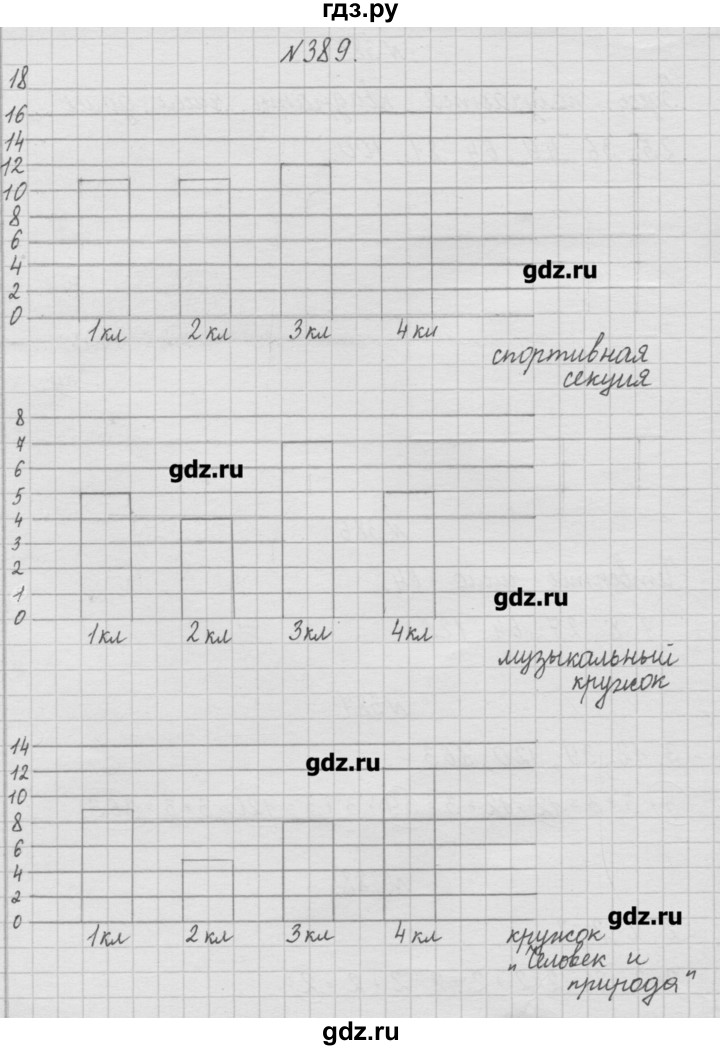 гдз.ру
N389.
18
16
14
12
10
8
6
4
2
0
1кл 2кл 3кл 4ки
gdz.ru
спортивная
секция
8
7
6
5
4
3
2
1
0
gdz.ru
gdz.ru
1кл 2кл 3кл 4кл
музыкальный
кружок
14
12
10
8
6
4
2
0
gdz.ru
gdz.ru
1кл 2кл 3кл 4кл
кружок
"Человек и
природа"
gdz.ru